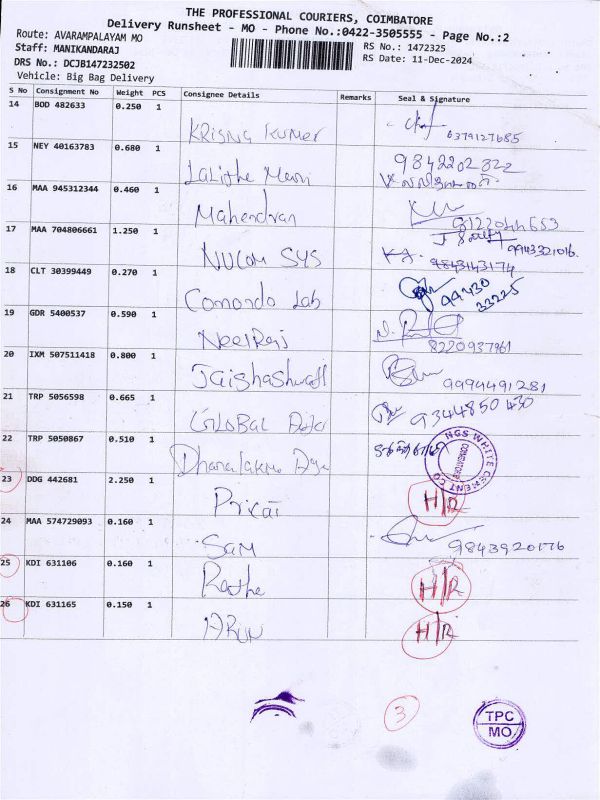 THE PROFESSIONAL COURIERS, COIMBATORE
Delivery Runsheet - MO - Phone No.:0422-3505555 - Page No.:2
Route: AVARAMPALAYAM MO
RS No.: 1472325
Staff: MANIKANDARAJ
RS Date: 11-Dec-2024
DRS No.: DCJB147232502
Vehicle: Big Bag Delivery
S No Consignment No Weight PCS Consignee Details Remarks Seal & Signature
14 BOD 482633 0.250 1
KRisna Kumer 6379127685
15 NEY 40163783 0.680 1
Lalithe Mani 9842202822
16 MAA 945312344 0.460 1
Mahendran 9122044653
17 MAA 704806661 1.250 1
NUCom SYS 9943321016.
9843143174
18 CLT 30399449 0.270 1
Comondo Lab 99430
33225
19 GDR 5400537 0.590 1
NeelRaj 8220937961
20 IXM 507511418 0.800 1
9994491281
21 TRP 5056598 0.665 1
GLOBAL 9344850430
22 TRP 5050867 0.510 1
NGS WHITE CEMENT CO
COIMBATORE
23 DDG 442681 2.250 1
H/R
24 MAA 574729093 0.160 1
SAM 9843920176
25 KDI 631106 0.160 1
Rathe H/R
26 KDI 631165 0.150 1
ARUN H/R
3
TPC
MO